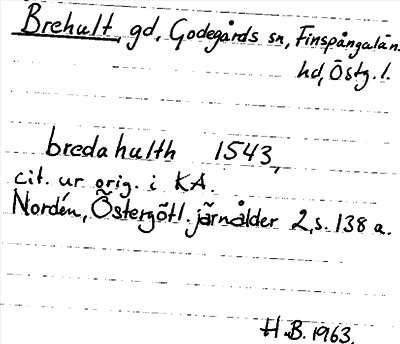 Brehult, gd, Godegårds sn, Finspångalän.
hd, Östg. l.
breda hulth 1543,
cit. ur orig. i KA.
Nordén, Östergötl. järnålder 2, s. 138 a.
H.B. 1963.